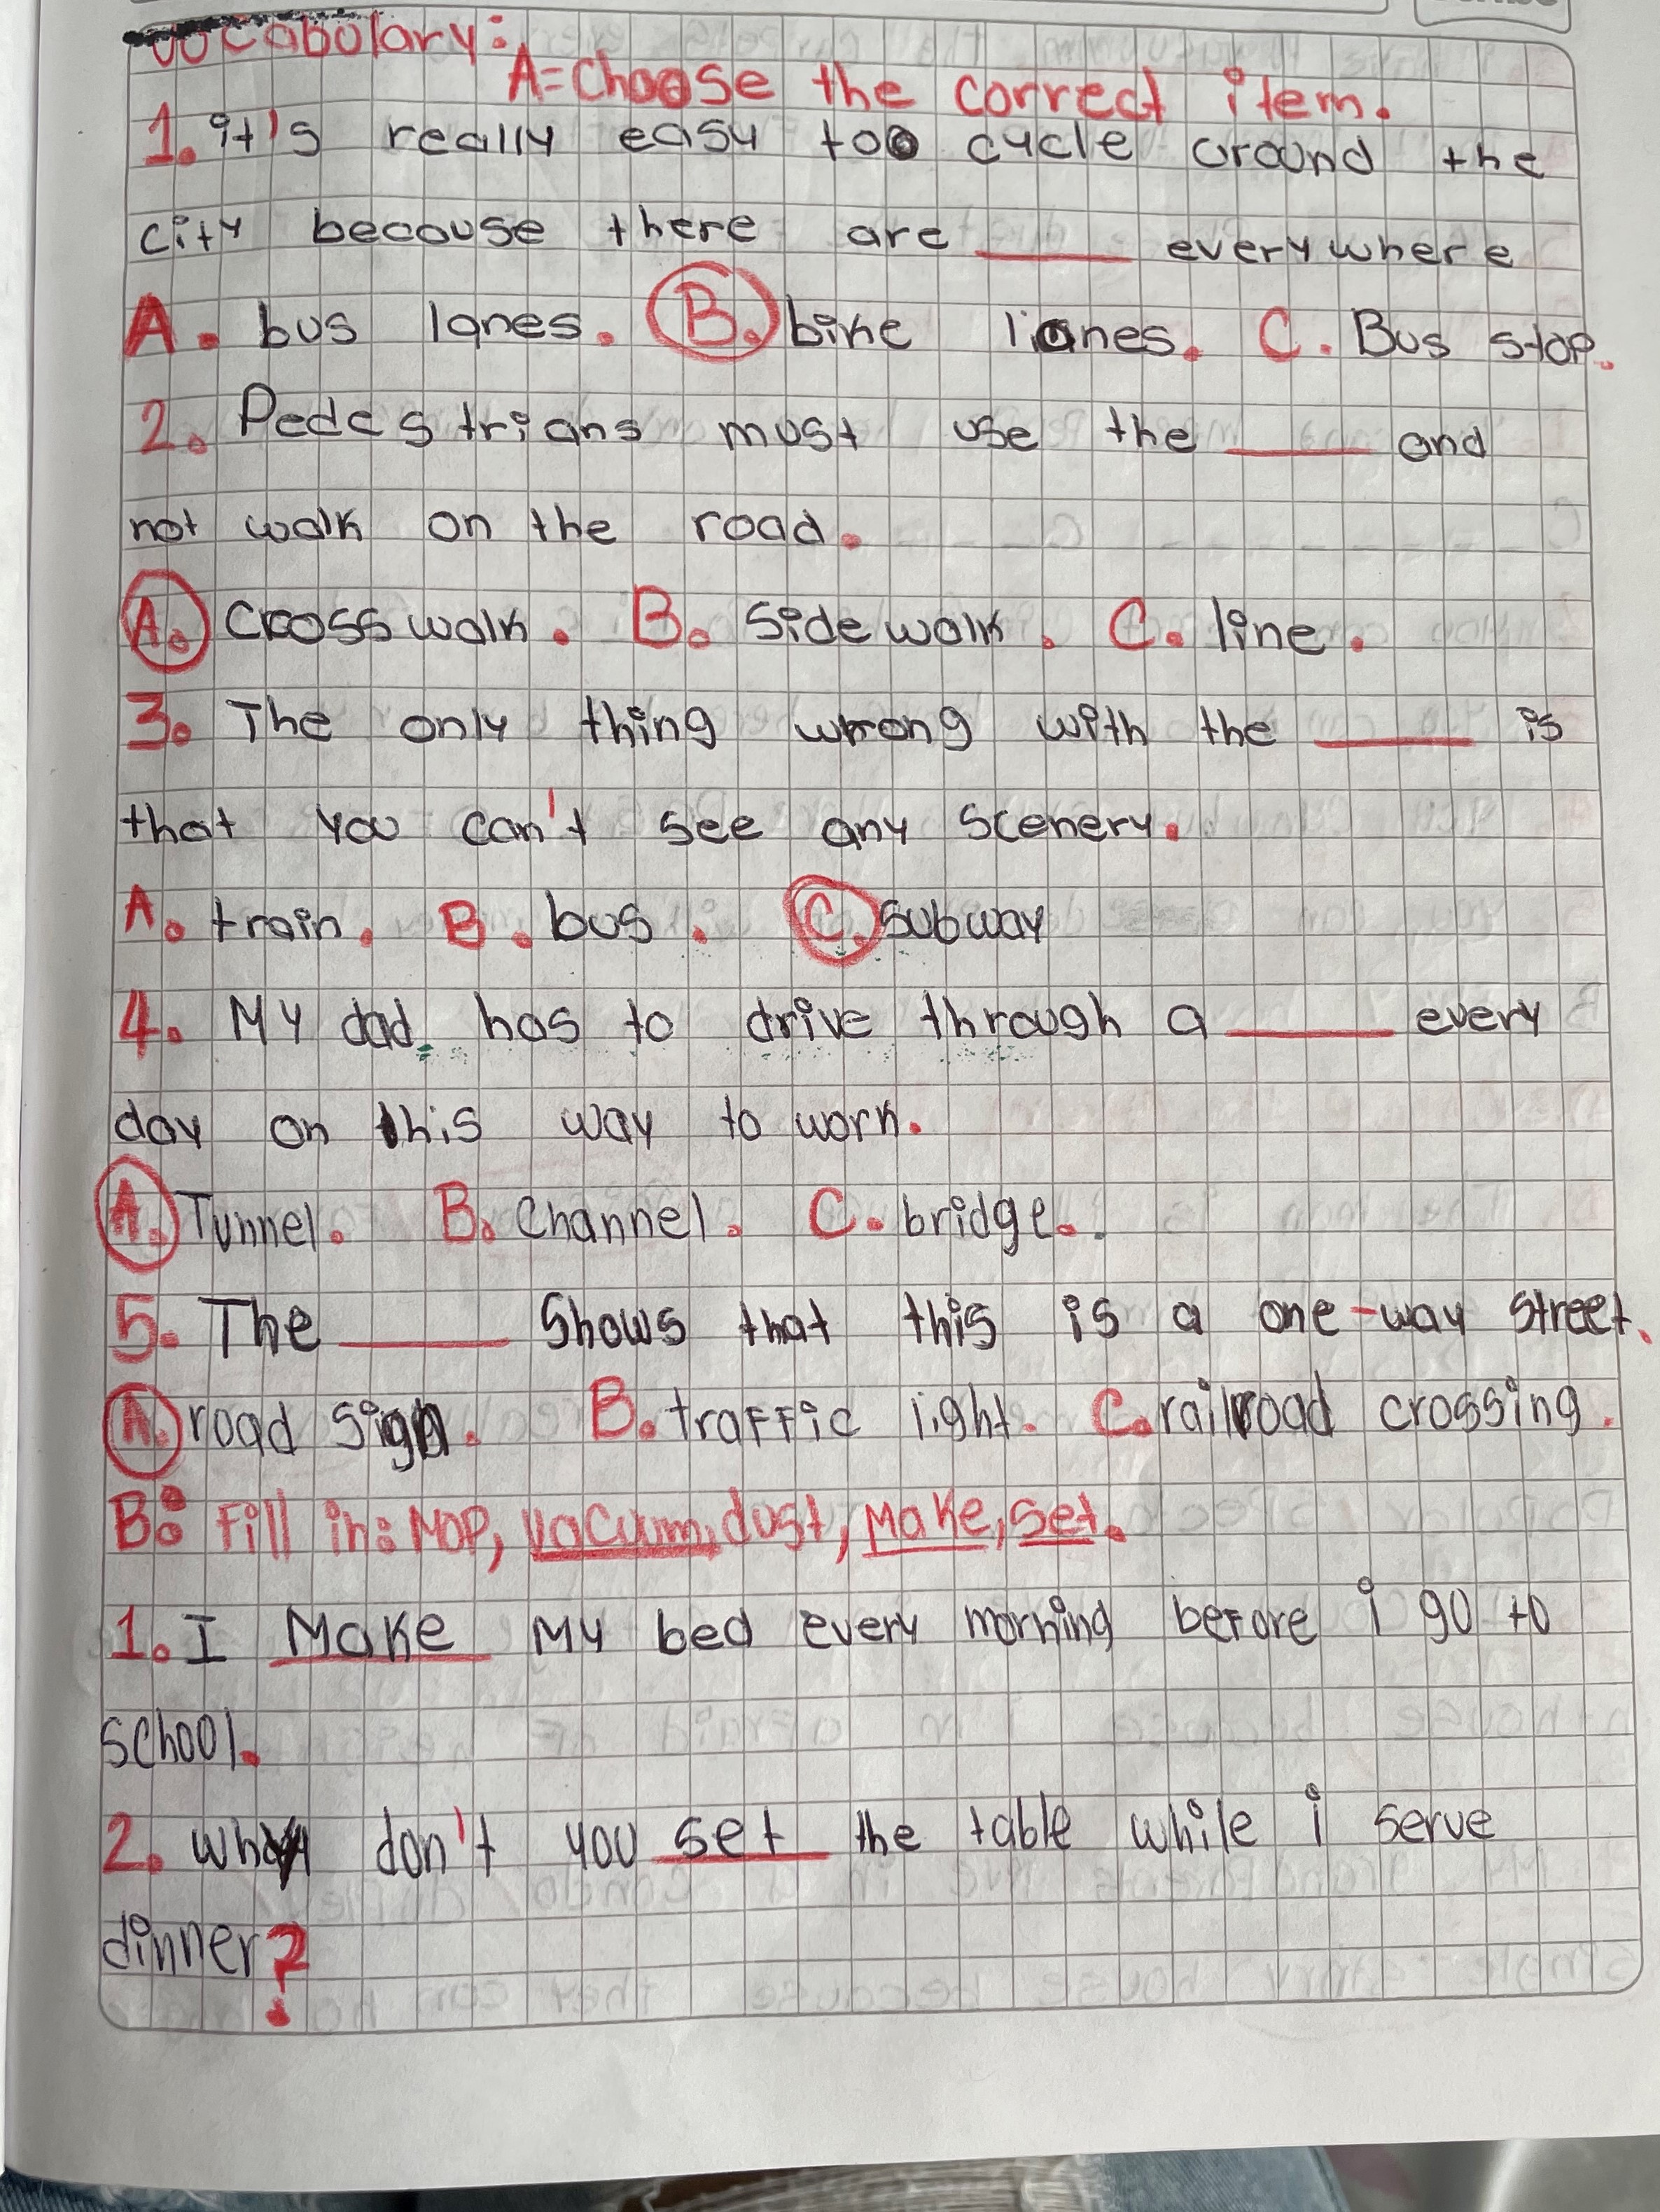 Vocabulary:
A=Choose the correct item.
1. it's really easy too cycle around the
city becouse there are ____ everywhere
A. bus lanes. B. bike lianes. C. Bus stop.
2. Pedestrians must use the ____ and
not walk on the road.
A. Crosswalk. B. Sidewalk. C. line.
3. The only thing wrong with the ____ is
that you can't see any scenery.
A. train. B. bus. C. subway
4. My dad has to drive through a ____ every
day on this way to work.
A. Tunnel. B. Channel. C. bridge.
5. The ____ Shows that this is a one-way street.
A. road sign. B. traffic light. C. railroad crossing.
B: Fill in: Mop, vacuum, dust, Make, set.
1. I Make My bed every morning before i go to
school.
2. why don't you set the table while i serve
dinner?